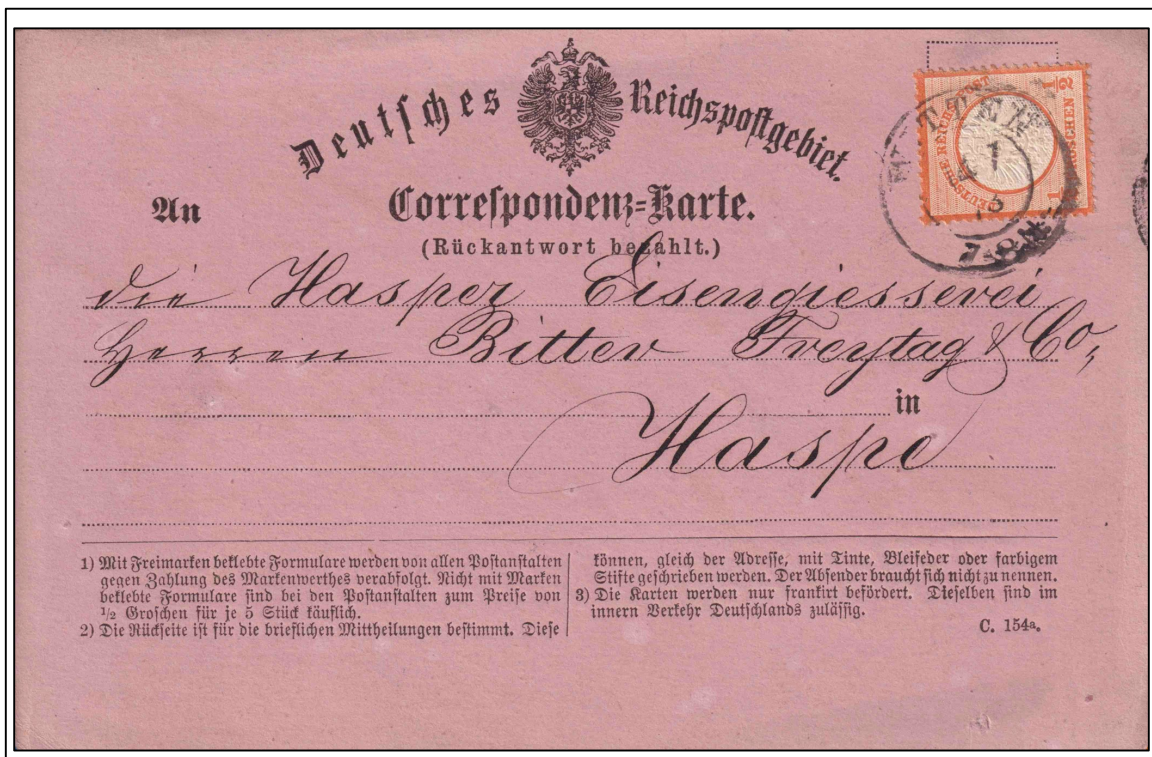 Deutsches Reichspostgebiet.
Correspondenz-Karte.
(Rückantwort bezahlt.)
An
die Hasper Eisengiesserei
Herren Bitter Freytag & Co,
in
Haspe
DEUTSCHE REICHS-POST
1/2 GROSCHEN 1/2
4 1
7-8 N
1) Mit Freimarken beklebte Formulare werden von allen Postanstalten
gegen Zahlung des Markenwerthes verabfolgt. Nicht mit Marken
beklebte Formulare sind bei den Postanstalten zum Preise von
1/2 Groschen für je 5 Stück käuflich.
2) Die Rückseite ist für die brieflichen Mittheilungen bestimmt. Diese
können, gleich der Adresse, mit Tinte, Bleifeder oder farbigem
Stifte geschrieben werden. Der Absender braucht sich nicht zu nennen.
3) Die Karten werden nur frankirt befördert. Dieselben sind im
innern Verkehr Deutschlands zulässig.
C. 154a.